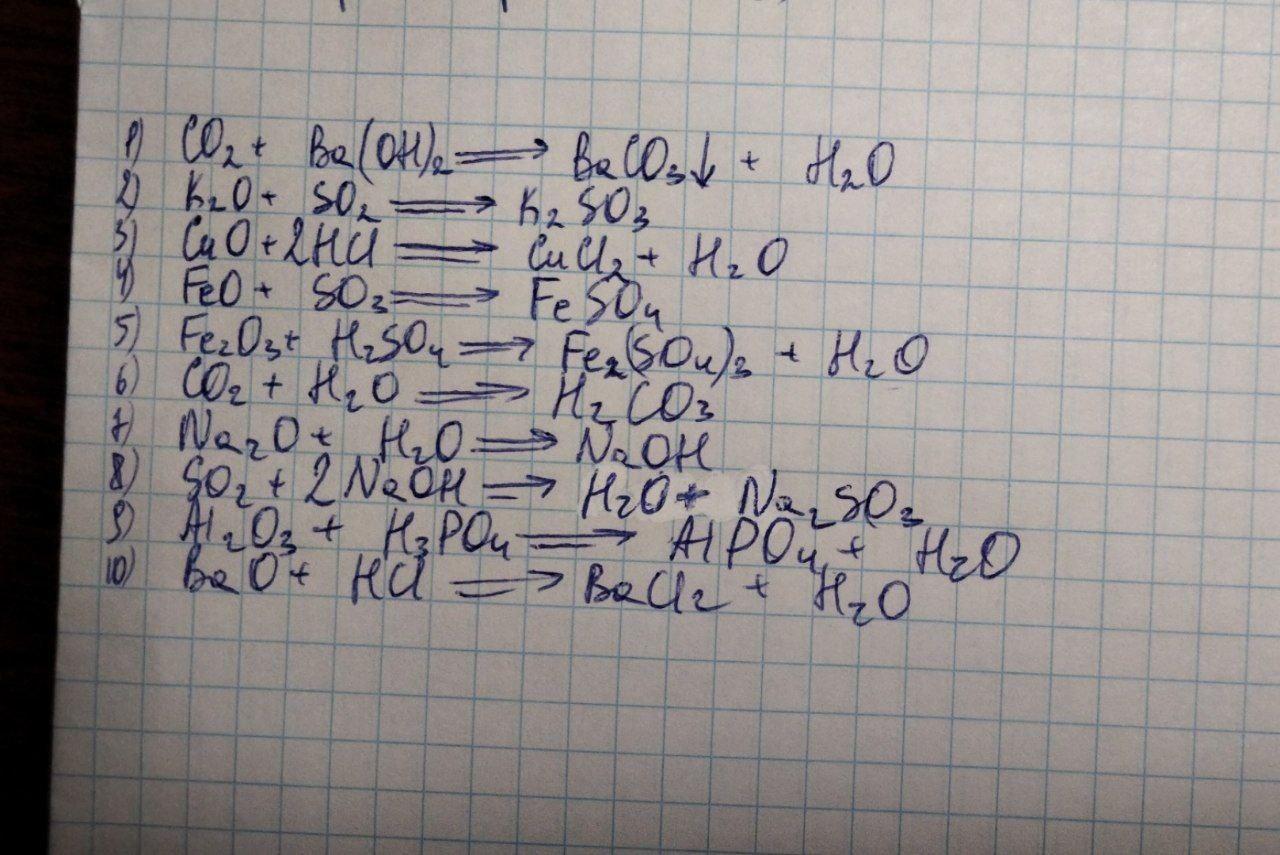 1) CO2 + Ba(OH)2 ⟹ BaCO3↓ + H2O
2) K2O + SO2 ⟹ K2SO3
3) CuO + 2HCl ⟹ CuCl2 + H2O
4) FeO + SO3 ⟹ FeSO4
5) Fe2O3 + H2SO4 ⟹ Fe2(SO4)3 + H2O
6) CO2 + H2O ⟹ H2CO3
7) Na2O + H2O ⟹ NaOH
8) SO2 + 2NaOH ⟹ H2O + Na2SO3
9) Al2O3 + H3PO4 ⟹ AlPO4 + H2O
10) BaO + HCl ⟹ BaCl2 + H2O